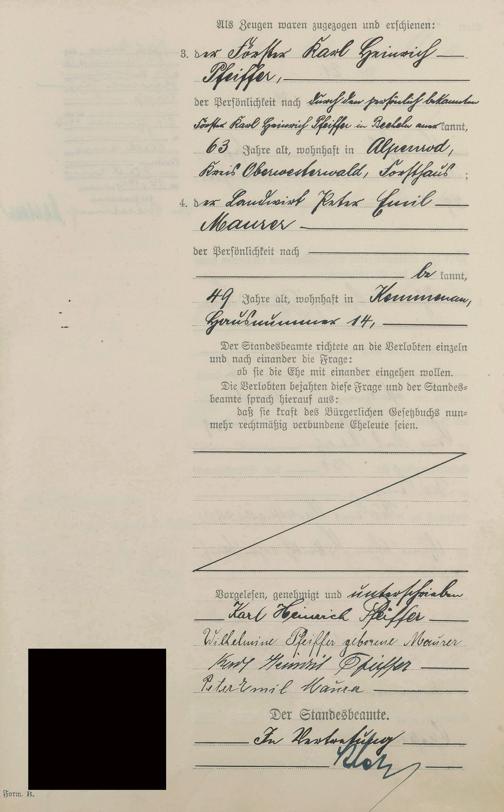 Als Zeugen waren zugezogen und erschienen:
3. der Förster Karl Heinrich
Pfeiffer,
der Persönlichkeit nach durch den persönlich bekannten
Förster Karl Heinrich Pfeiffer in aner kannt,
63 Jahre alt, wohnhaft in Alpenrod,
Kreis Oberwesterwald, Forsthaus ;
4. der Landwirt Peter Emil
Maurer
der Persönlichkeit nach
be kannt,
49 Jahre alt, wohnhaft in Kemmenau,
Hausnummer 14,
Der Standesbeamte richtete an die Verlobten einzeln
und nach einander die Frage:
ob sie die Ehe mit einander eingehen wollen.
Die Verlobten bejahten diese Frage und der Standes-
beamte sprach hierauf aus:
daß sie kraft des Bürgerlichen Gesetzbuchs nun-
mehr rechtmäßig verbundene Eheleute seien.
Vorgelesen, genehmigt und unterschrieben
Karl Heinrich Pfeiffer
Wilhelmine Pfeiffer geborene Maurer
Karl Heinrich Pfeiffer
Peter Emil Maurer
Der Standesbeamte.
In Vertretung
Form. B.